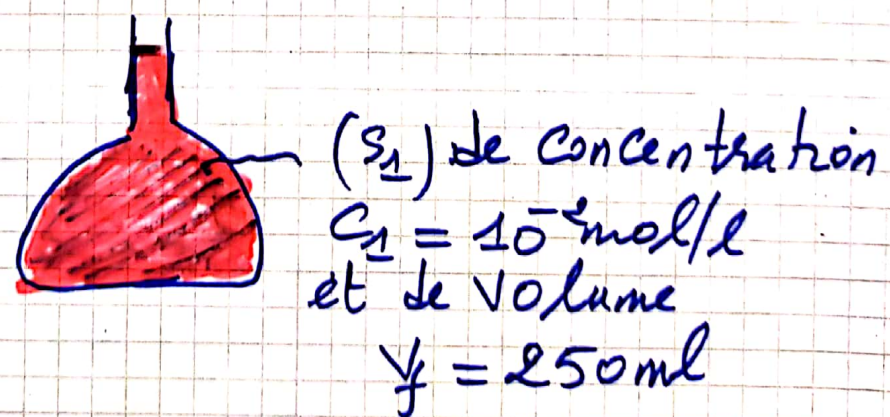 (S₁) de concentration
C₁ = 10⁻² mol/l
et de volume
Vf = 250 ml